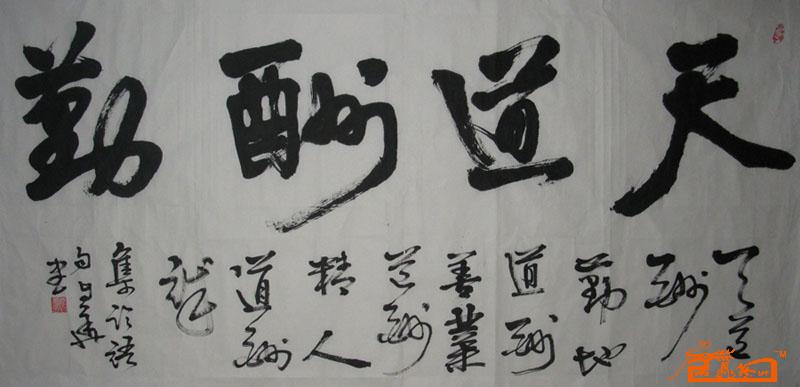 天道酬勤
天道
酬
勤地
道酬
善業
道酬
精人
道酬
誠
集论语
句
书